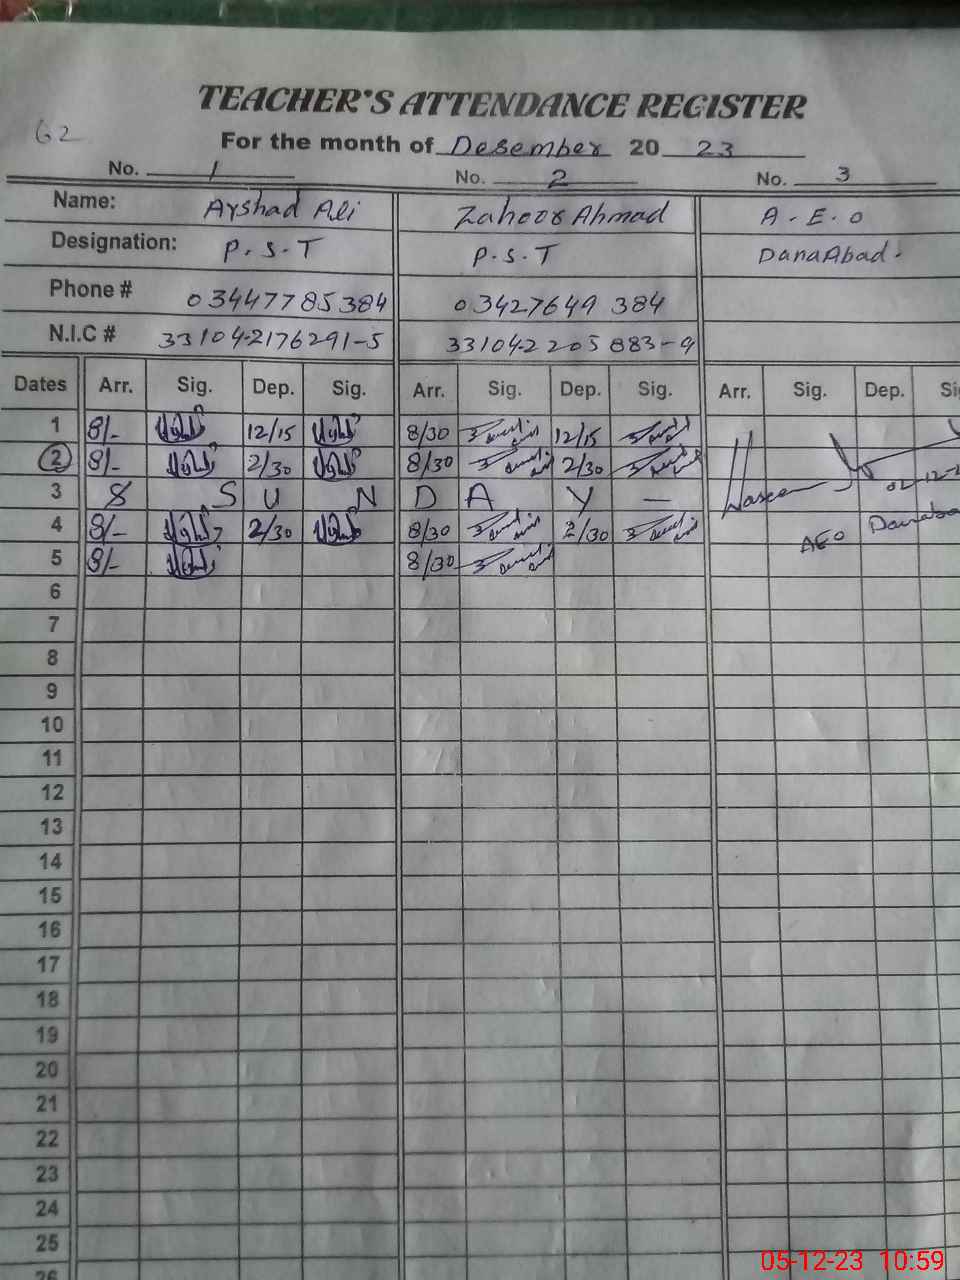 TEACHER'S ATTENDANCE REGISTER
62
For the month of Desember 20 23
No. 1 No. 2 No. 3
Name: Arshad Ali Zahoor Ahmad A.E.O
Designation: P.S.T P.S.T DanaAbad.
Phone # 03447785384 03427649384
N.I.C # 331042176291-5 331042205883-9
Dates Arr. Sig. Dep. Sig. Arr. Sig. Dep. Sig. Arr. Sig. Dep. Si
1 8/- 12/15 8/30 12/15
2 8/- 2/30 8/30 2/30 02-12-2
3 S U N D A Y —
4 8/- 2/30 8/30 2/30 AEO
5 8/- 8/30
6
7
8
9
10
11
12
13
14
15
16
17
18
19
20
21
22
23
24
25
26
05-12-23 10:59